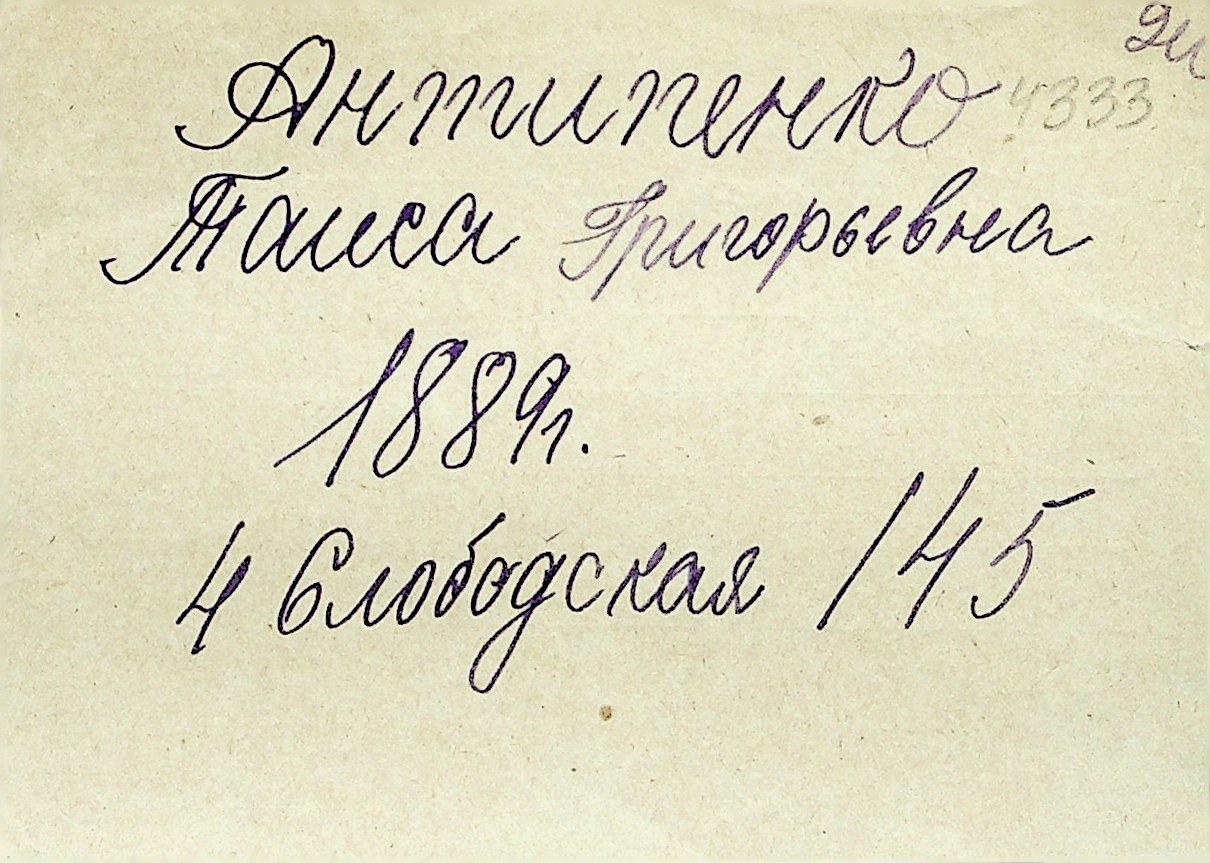 Антипенко 4333
Таиса Григорьевна
1889г.
4 Слободская 145